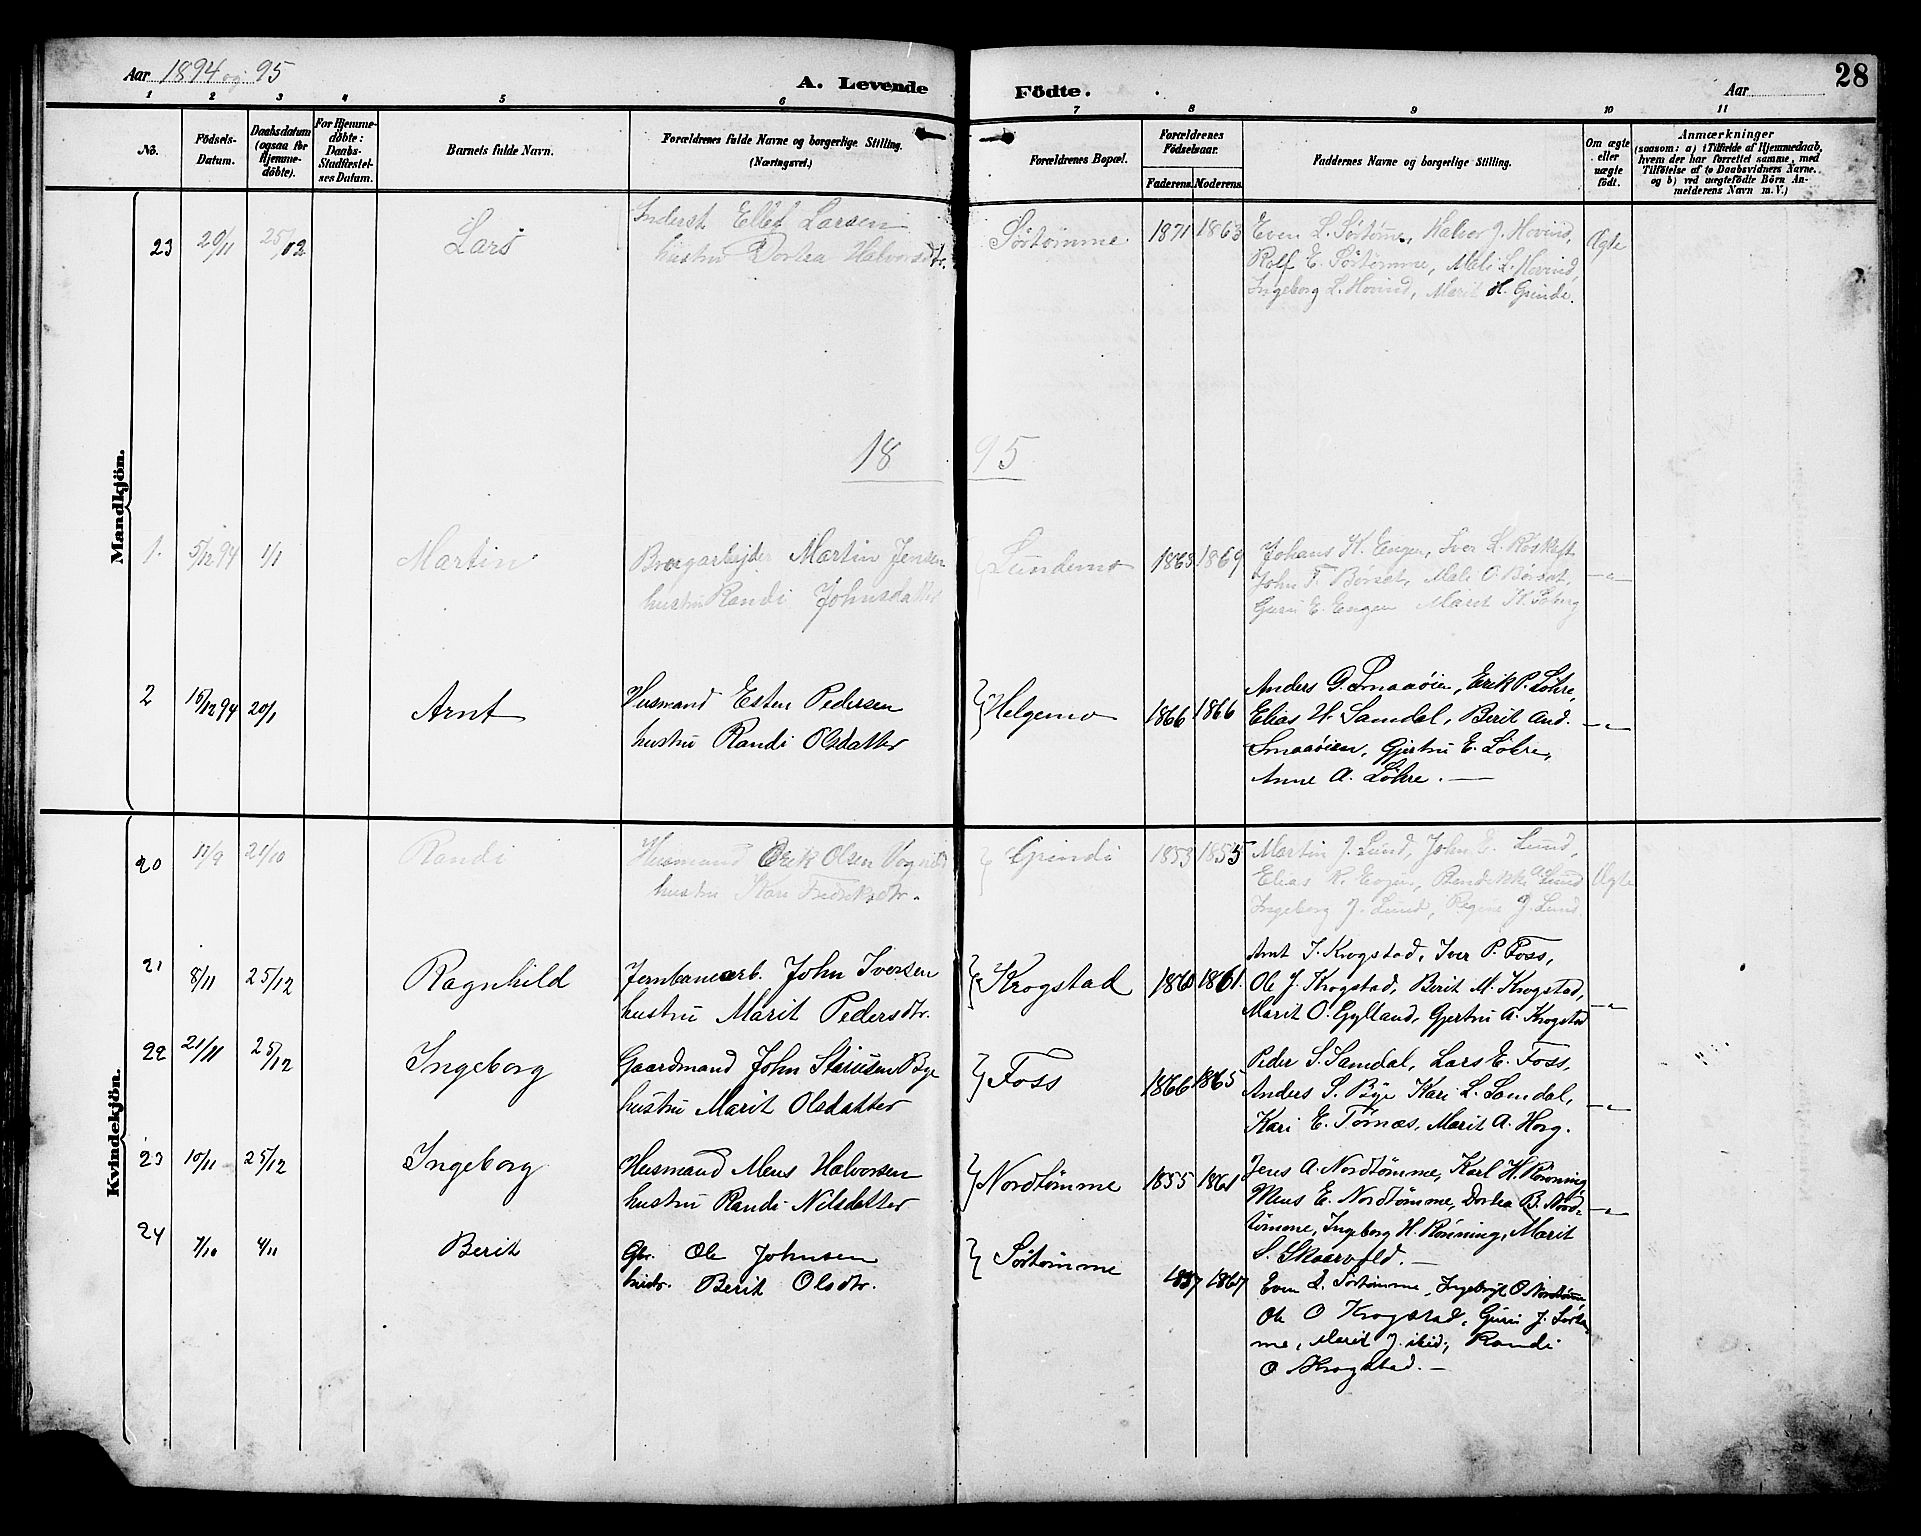 Aar 1894 og 95
A. Levende Födte.
Aar
28
1 2 3 4 5 6 7 8 9 10 11
No.
Födsels-Datum.
Daabsdatum (ogsaa for Hjemme-döbte).
For Hjemme-döbte: Daabs-Stadfæstel-ses Datum.
Barnets fulde Navn.
Forældrenes fulde Navne og borgerlige Stilling. (Næringsvei.)
Forældrenes Bopæl.
Forældrenes Födselsaar.
Faderens. Moderens.
Faddernes Navne og borgerlige Stilling.
Om ægte eller uægte födt.
Anmærkninger
(saasom: a) i Tilfælde af Hjemmedaab,
hvem der har forrettet samme, med
Tilföielse af to Daabsvidners Navne.
og b) ved uægtefödte Börn An-
melderens Navn m. V.)
Mandkjön.
23 20/11 25/12 Lars Inderst Ellef Larsen Sørtømme 1871 1863 Even L. Sørtømme, Halvor J. Hovind, Ægte
hustru Dortea Halvorsdtr. Rolf E. Sørtømme, Mali L. Hovind,
Ingeborg L. Hovind, Marit H. Grinde.
1895
1. 5/12 94 1/1 Martin Martin Jensen Sundemo 1863 1869 Johans K. Engen, Iver L. Røskaft —„—
hustru Randi Johnsdatter John F. Børset, Mali O. Børset,
Guru E. Engen Marit K.
2 15/12 94 20/1 Arnt Husmand Esten Pedersen Helgemo 1866 1866 Anders O. Smaaøien, Erik P. Løhre,
hustru Randi Olsdatter Elias H. Samdal, Berit And. —„—
Smaaøien, Gjertru E. Løhre,
Anne A. Løhre. —
Kvindekjön.
20 11/9 21/10 Randi Husmand Erik Olsen Vognild Grindi 1853 1855 Martin J. Lund, John E. Lund, Ægte
hustru Kari Fredriksdtr. Elias K. Engen, Lund
Ingeborg J. Lund, Regine J. Lund.
21 8/11 25/12 Ragnhild Jernbanearb. John Iversen Krogstad 1860 1861. Arnt I. Krogstad, Iver P. Foss,
hustru Marit Pedersdtr. Ole J. Krogstad, Berit M. Krogstad,
Marit O. Gylland, Gjertru A. Krogstad —„—
22 21/11 25/12 Ingeborg Gaardmand John Bye Foss 1866 1865 Peder S. Samdal, Lars E. Foss,
hustru Marit Olsdatter Anders S. Bye Kari L. Samdal, —„—
Kari E. Tørnæs, Marit A. Horg.
23 10/11 25/12 Ingeborg Husmand Mens Halvorsen Nordtømme 1855 1861 Jens A. Nordtømme, Karl H. Rønning
hustru Randi Nilsdatter Mens E. Nordtømme, Dortea B. Nord- —„—
tømme, Ingeborg H. Rønning, Marit
S. Skaarvold. —
24 7/10 4/11 Berit Gbr. Ole Johnsen Sørtømme 1857 1867 Even L. Sørtømme, Ingebrigt O. Nordtømme
hustr. Berit Olsdtr. Ole O Krogstad, Guri J. Sørtøm-
me, Marit J. ibid; Randi
O Krogstad. —